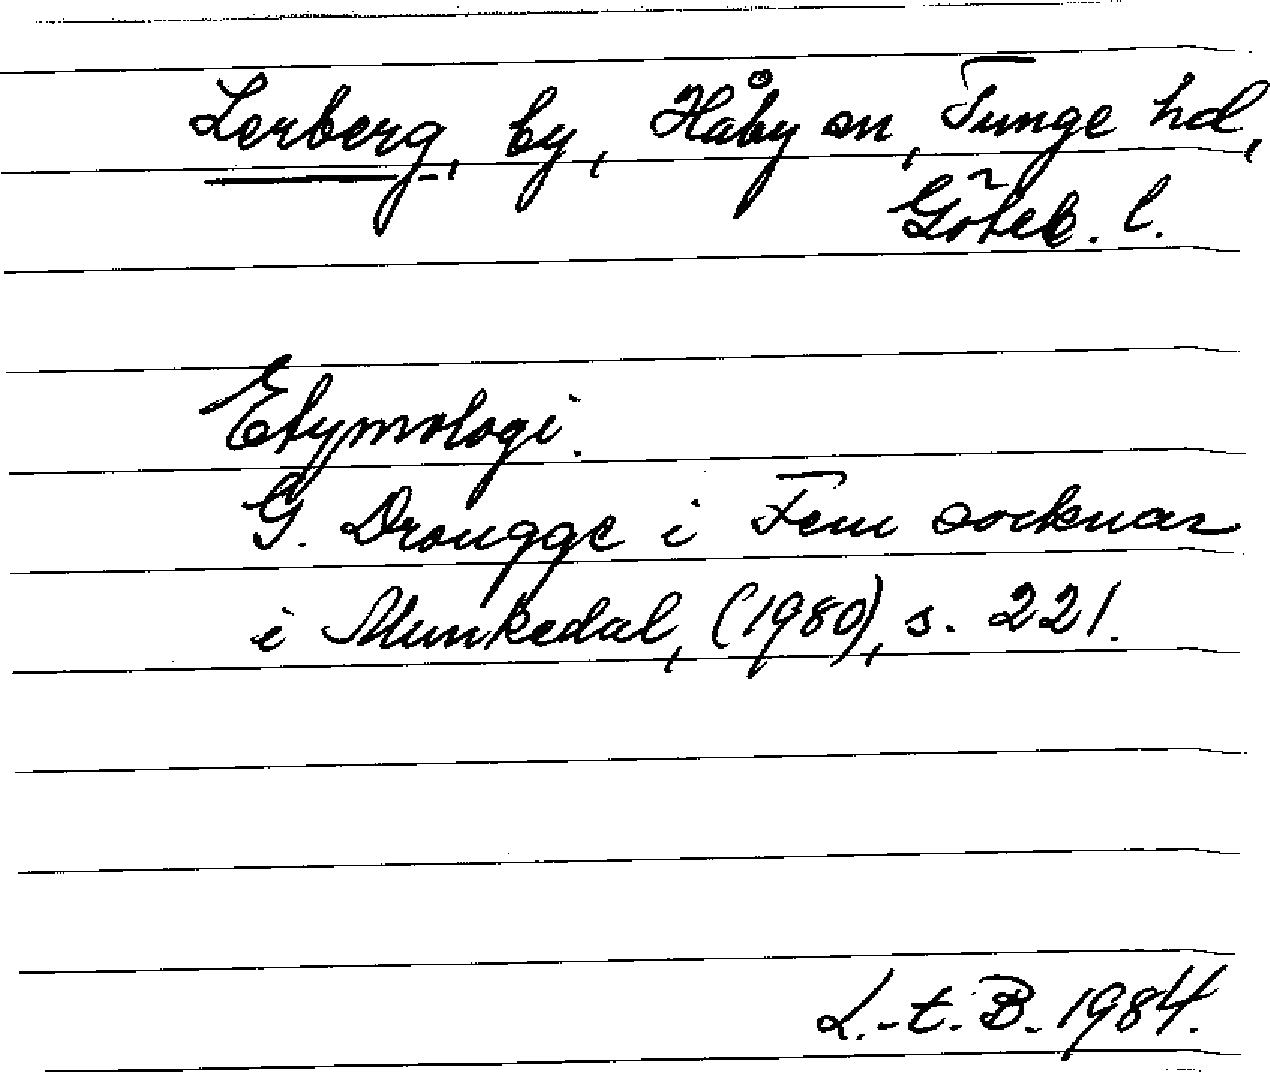 Lerberg, by, Håby sn, Tunge hd,
Göteb. l.
Etymologi.
G. Drougge i Fem socknar
i Munkedal, (1980), s. 221.
L.-t. B. 1984.